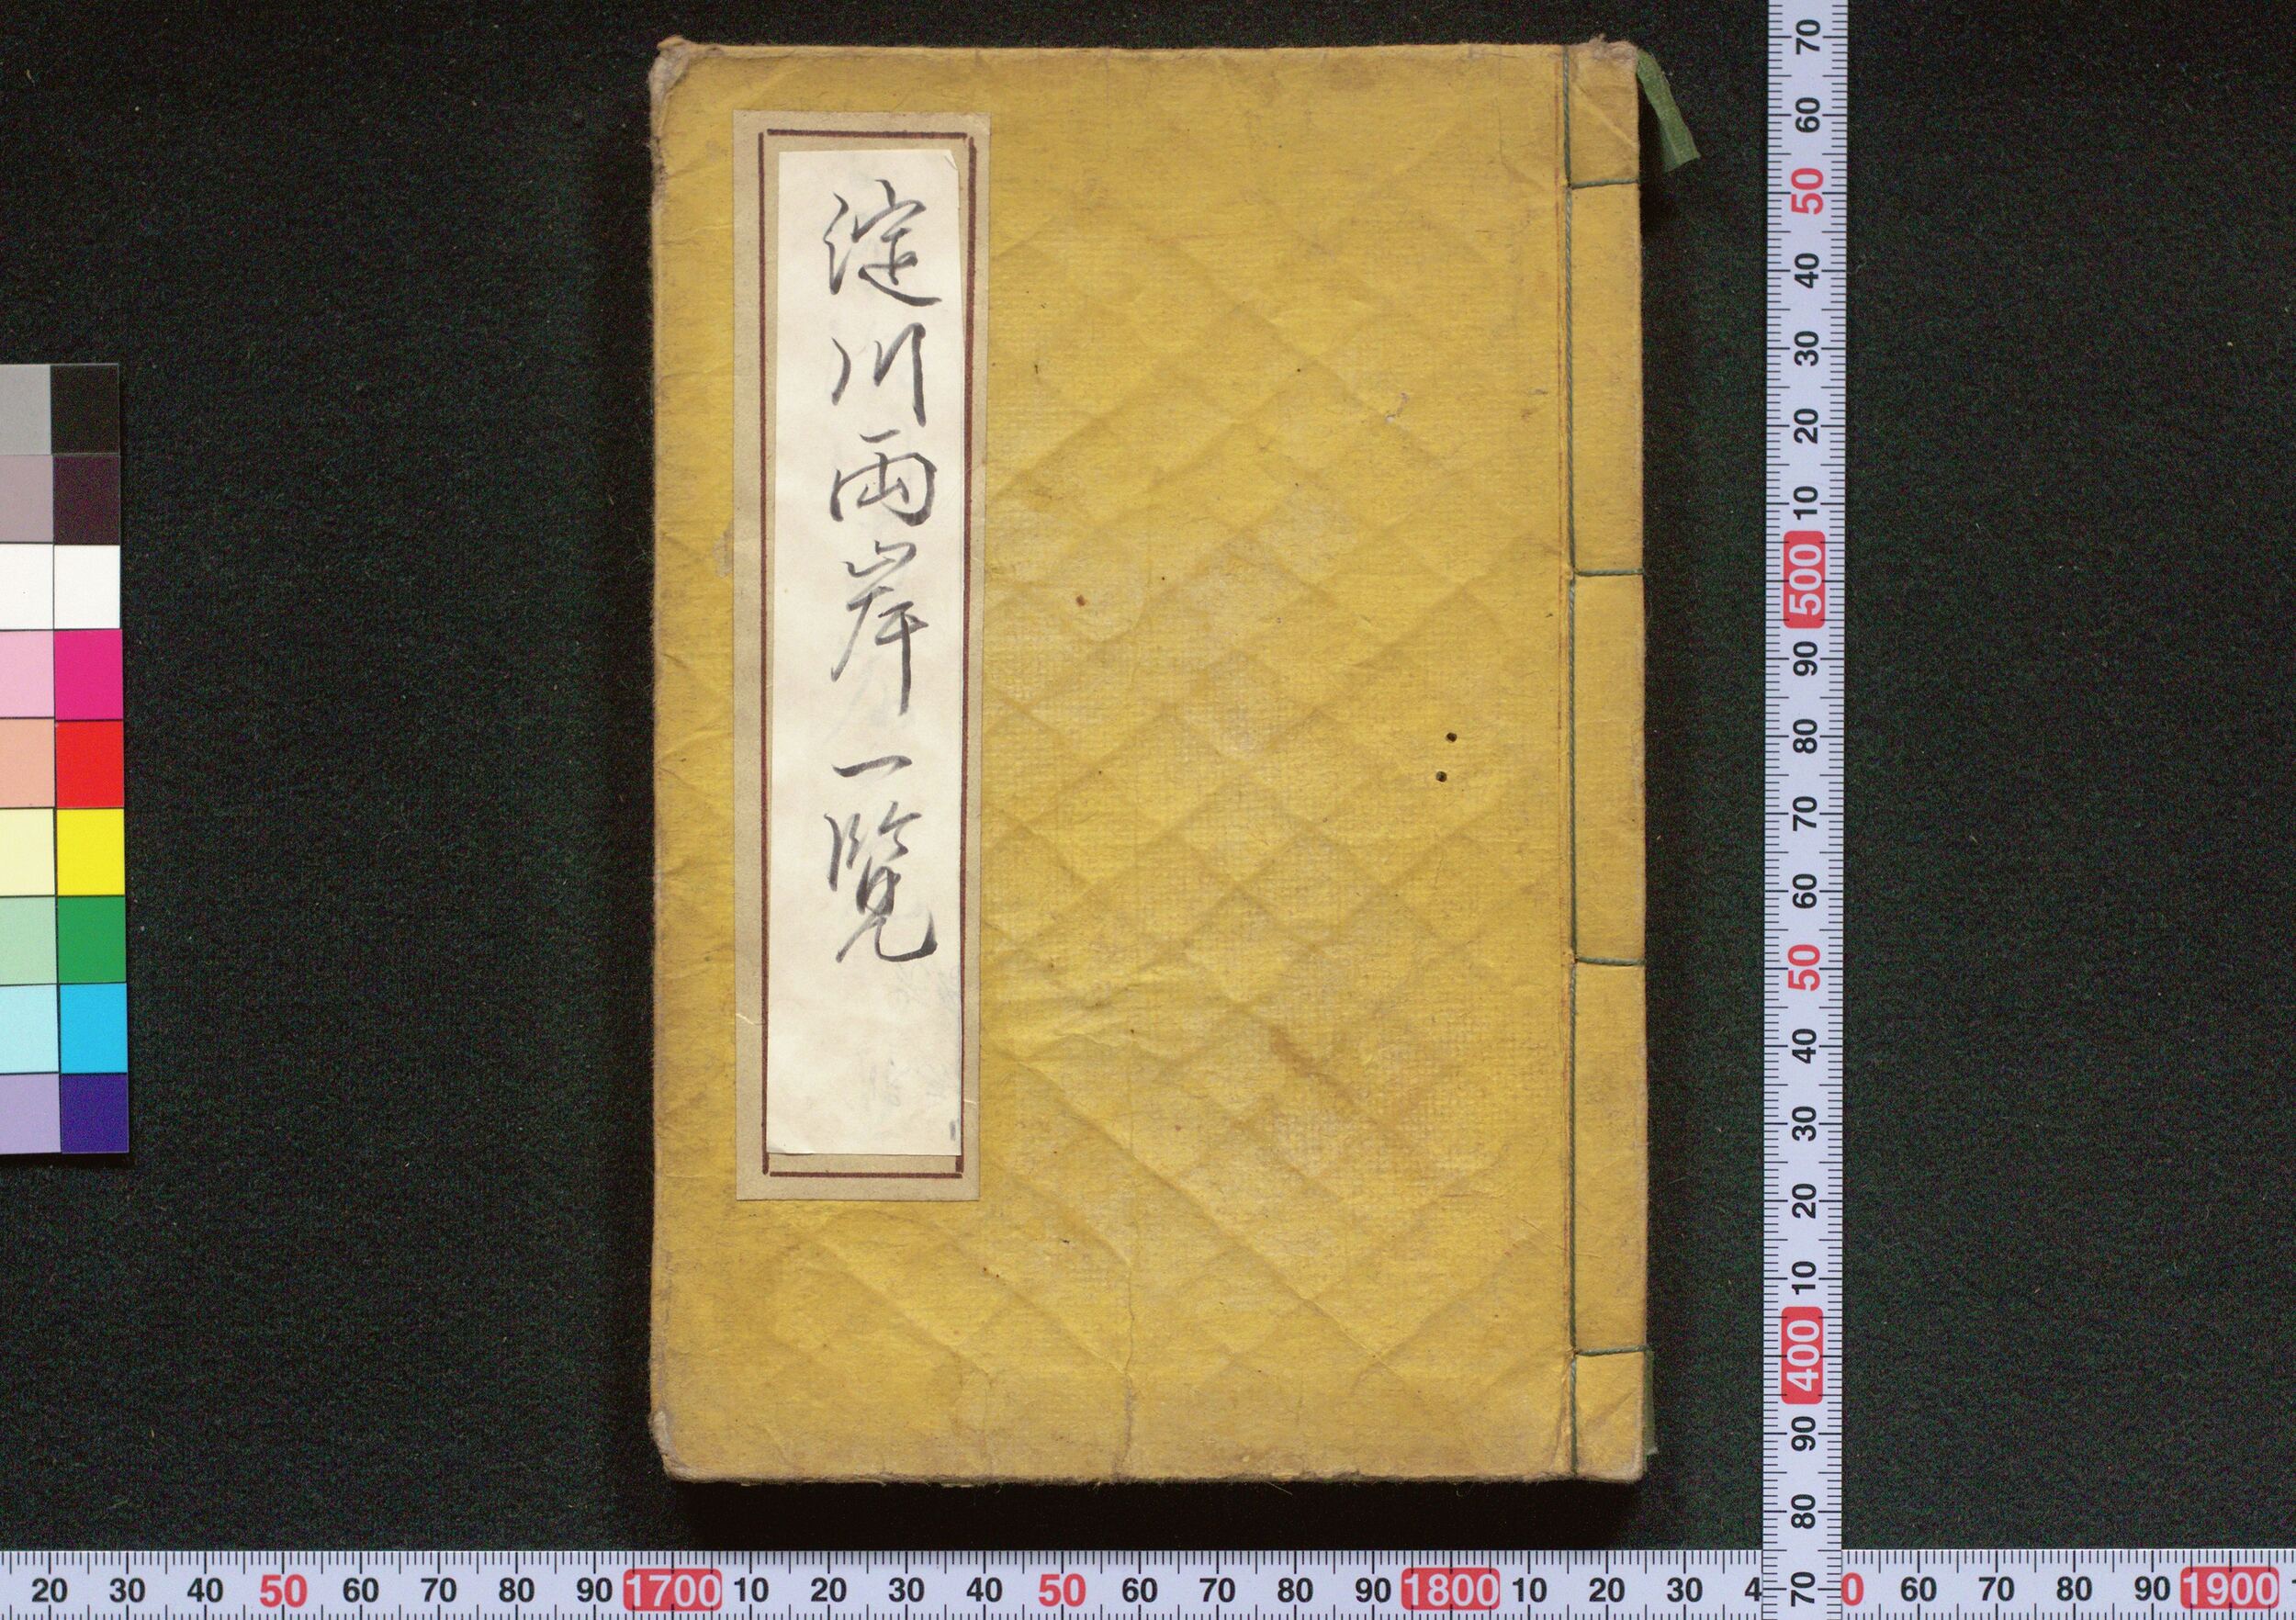 淀川両岸一覧
70
60
50
40
30
20
10
500
90
80
70
60
50
40
30
20
10
400
90
80
70
20 30 40 50 60 70 80 90 1700 10 20 30 40 50 60 70 80 90 1800 10 20 30 4 0 60 70 80 90 1900